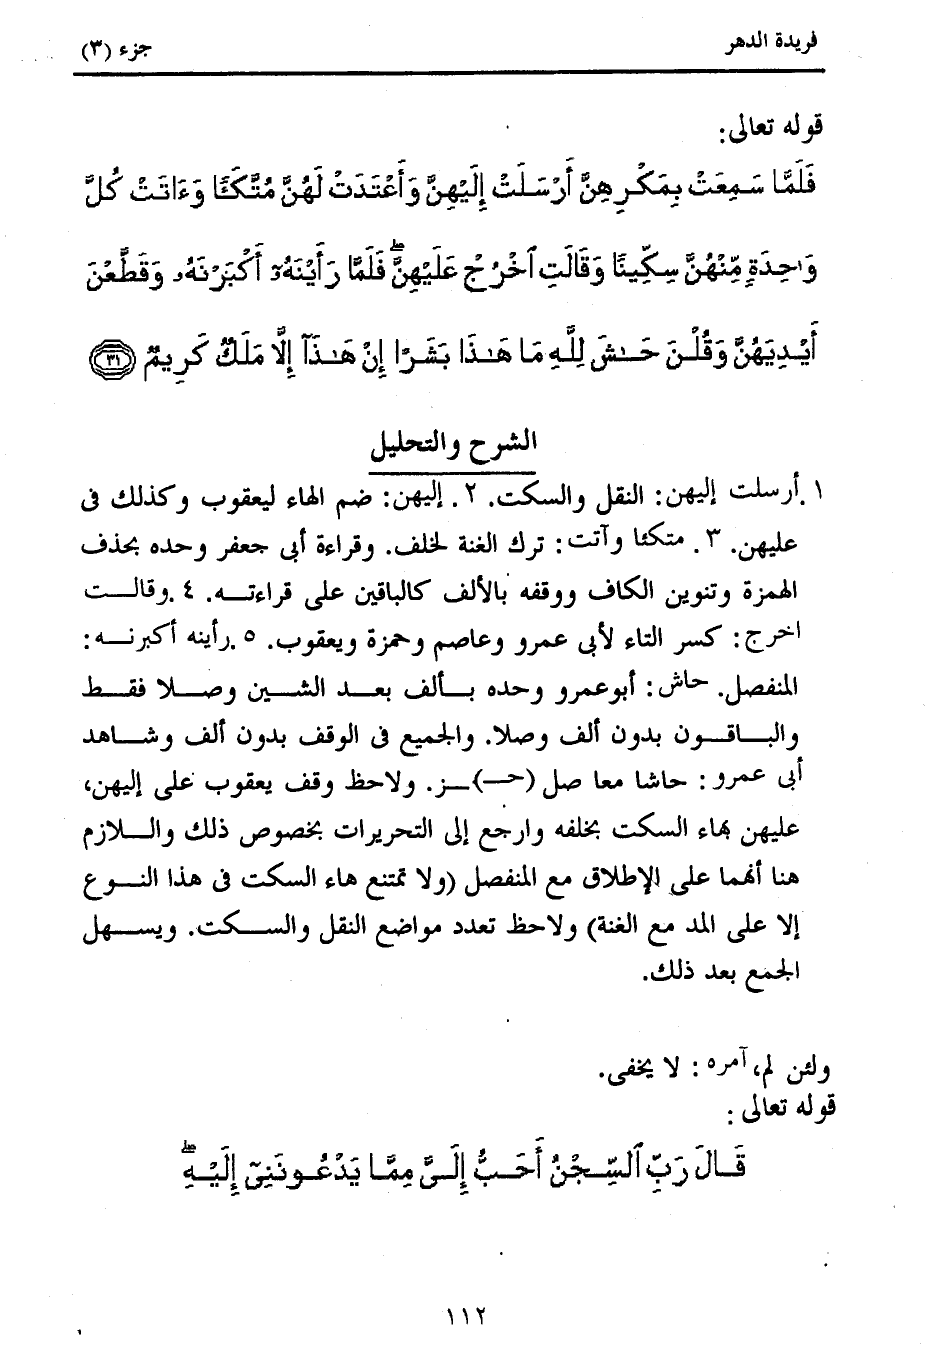 فريدة الدهر
جزء (٣)
قوله تعالى:
فَلَمَّا سَمِعَتْ بِمَكْرِهِنَّ أَرْسَلَتْ إِلَيْهِنَّ وَأَعْتَدَتْ لَهُنَّ مُتَّكَـًٔا وَءَاتَتْ كُلَّ
وَٰحِدَةٍ مِّنْهُنَّ سِكِّينًا وَقَالَتِ ٱخْرُجْ عَلَيْهِنَّ ۖ فَلَمَّا رَأَيْنَهُۥٓ أَكْبَرْنَهُۥ وَقَطَّعْنَ
أَيْدِيَهُنَّ وَقُلْنَ حَـٰشَ لِلَّهِ مَا هَـٰذَا بَشَرًا إِنْ هَـٰذَآ إِلَّا مَلَكٌ كَرِيمٌ ٣١
الشرح والتحليل
١ .أرسلت إليهن: النقل والسكت. ٢. إليهن: ضم الهاء ليعقوب وكذلك فى
عليهن. ٣. متكئا وآتت: ترك الغنة لخلف. وقراءة أبى جعفر وحده بحذف
الهمزة وتنوين الكاف ووقفه بالألف كالباقين على قراءتـــه. ٤ .وقالـــت
اخرج: كسر التاء لأبى عمرو وعاصم وحمزة ويعقوب. ٥ .رأينه أكبرنـــه:
المنفصل. حاش: أبوعمرو وحده بـــألف بعـــد الشـــين وصـــلا فقـــط
والبـــاقـــون بدون ألف وصلا. والجميع فى الوقف بدون ألف وشـــاهد
أبى عمرو: حاشا معا صل (حـ)ــز. ولاحظ وقف يعقوب على إليهن،
عليهن بهاء السكت بخلفه وارجع إلى التحريرات بخصوص ذلك والـــلازم
هنا أنهما على الإطلاق مع المنفصل (ولا تمتنع هاء السكت فى هذا النـــوع
إلا على المد مع الغنة) ولاحظ تعدد مواضع النقل والســـكت. ويســـهل
الجمع بعد ذلك.
ولئن لم، آمره: لا يخفى.
قوله تعالى:
قَالَ رَبِّ ٱلسِّجْنُ أَحَبُّ إِلَىَّ مِمَّا يَدْعُونَنِىٓ إِلَيْهِ ۖ
١١٢